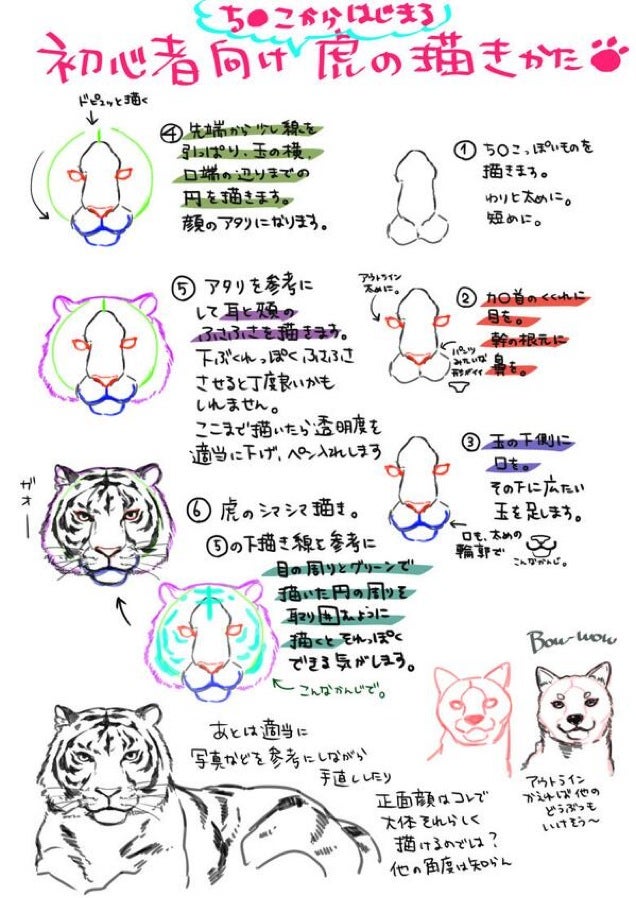 ち●こからはじまる
初心者向け 虎の描きかた
① ち○こっぽいものを
描きます。
わりと太めに。
短めに。
アウトライン
太めに。
② カ○首のくくれに
目を。
幹の根元に
鼻を。
パンツ
みたいな
形がイイ
③ 玉の下側に
口を。
その下に広たい
玉を足します。
口も、太めの
輪郭で
こんなかんじ。
ドピュッと描く
④ 先端から少し線を
引っぱり、玉の横、
口端の辺りまでの
円を描きます。
顔のアタリになります。
⑤ アタリを参考に
して耳と頬の
ふさふさを描きます。
下ぶくれっぽくふさふさ
させると丁度良いかも
しれません。
ここまで描いたら透明度を
適当に下げ、ペン入れします
ガオー
⑥ 虎のシマシマ描き。
⑤の下描き線を参考に
目の周りとグリーンで
描いた円の周りを
取り囲むように
描くとそれっぽく
できる気がします。
こんなかんじで。
あとは適当に
写真などを参考にしながら
手直ししたり
正面顔はコレで
大体それらしく
描けるのでは?
他の角度は知らん
Bow-wow
アウトライン
かえれば他の
どうぶつも
いけそう〜